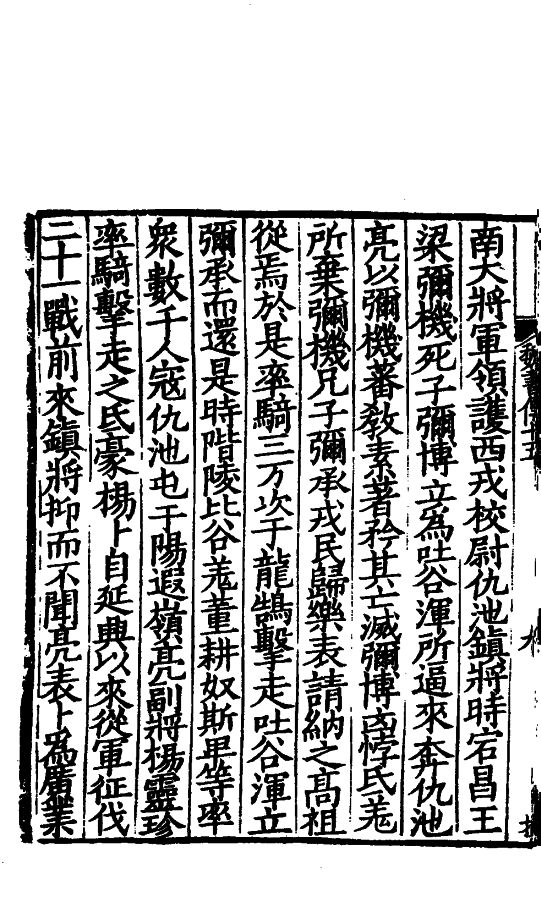 南大將軍領護西戎校尉仇池鎮將時宕昌王
梁彌機死子彌博立為吐谷渾所逼來奔仇池
亮以彌機蕃教素著矜其亡滅彌博凶悖氐羌
所棄彌機兄子彌承戎民歸樂表請納之高祖
從焉於是率騎三万次于龍鵠擊走吐谷渾立
彌承而還是時階陵比谷羌董耕奴斯卑等率
衆數千人寇仇池屯于陽遐嶺亮副將楊靈珍
率騎擊走之氐豪楊卜自延興以來從軍征伐
二十一戰前來鎮將抑而不聞亮表卜為廣業